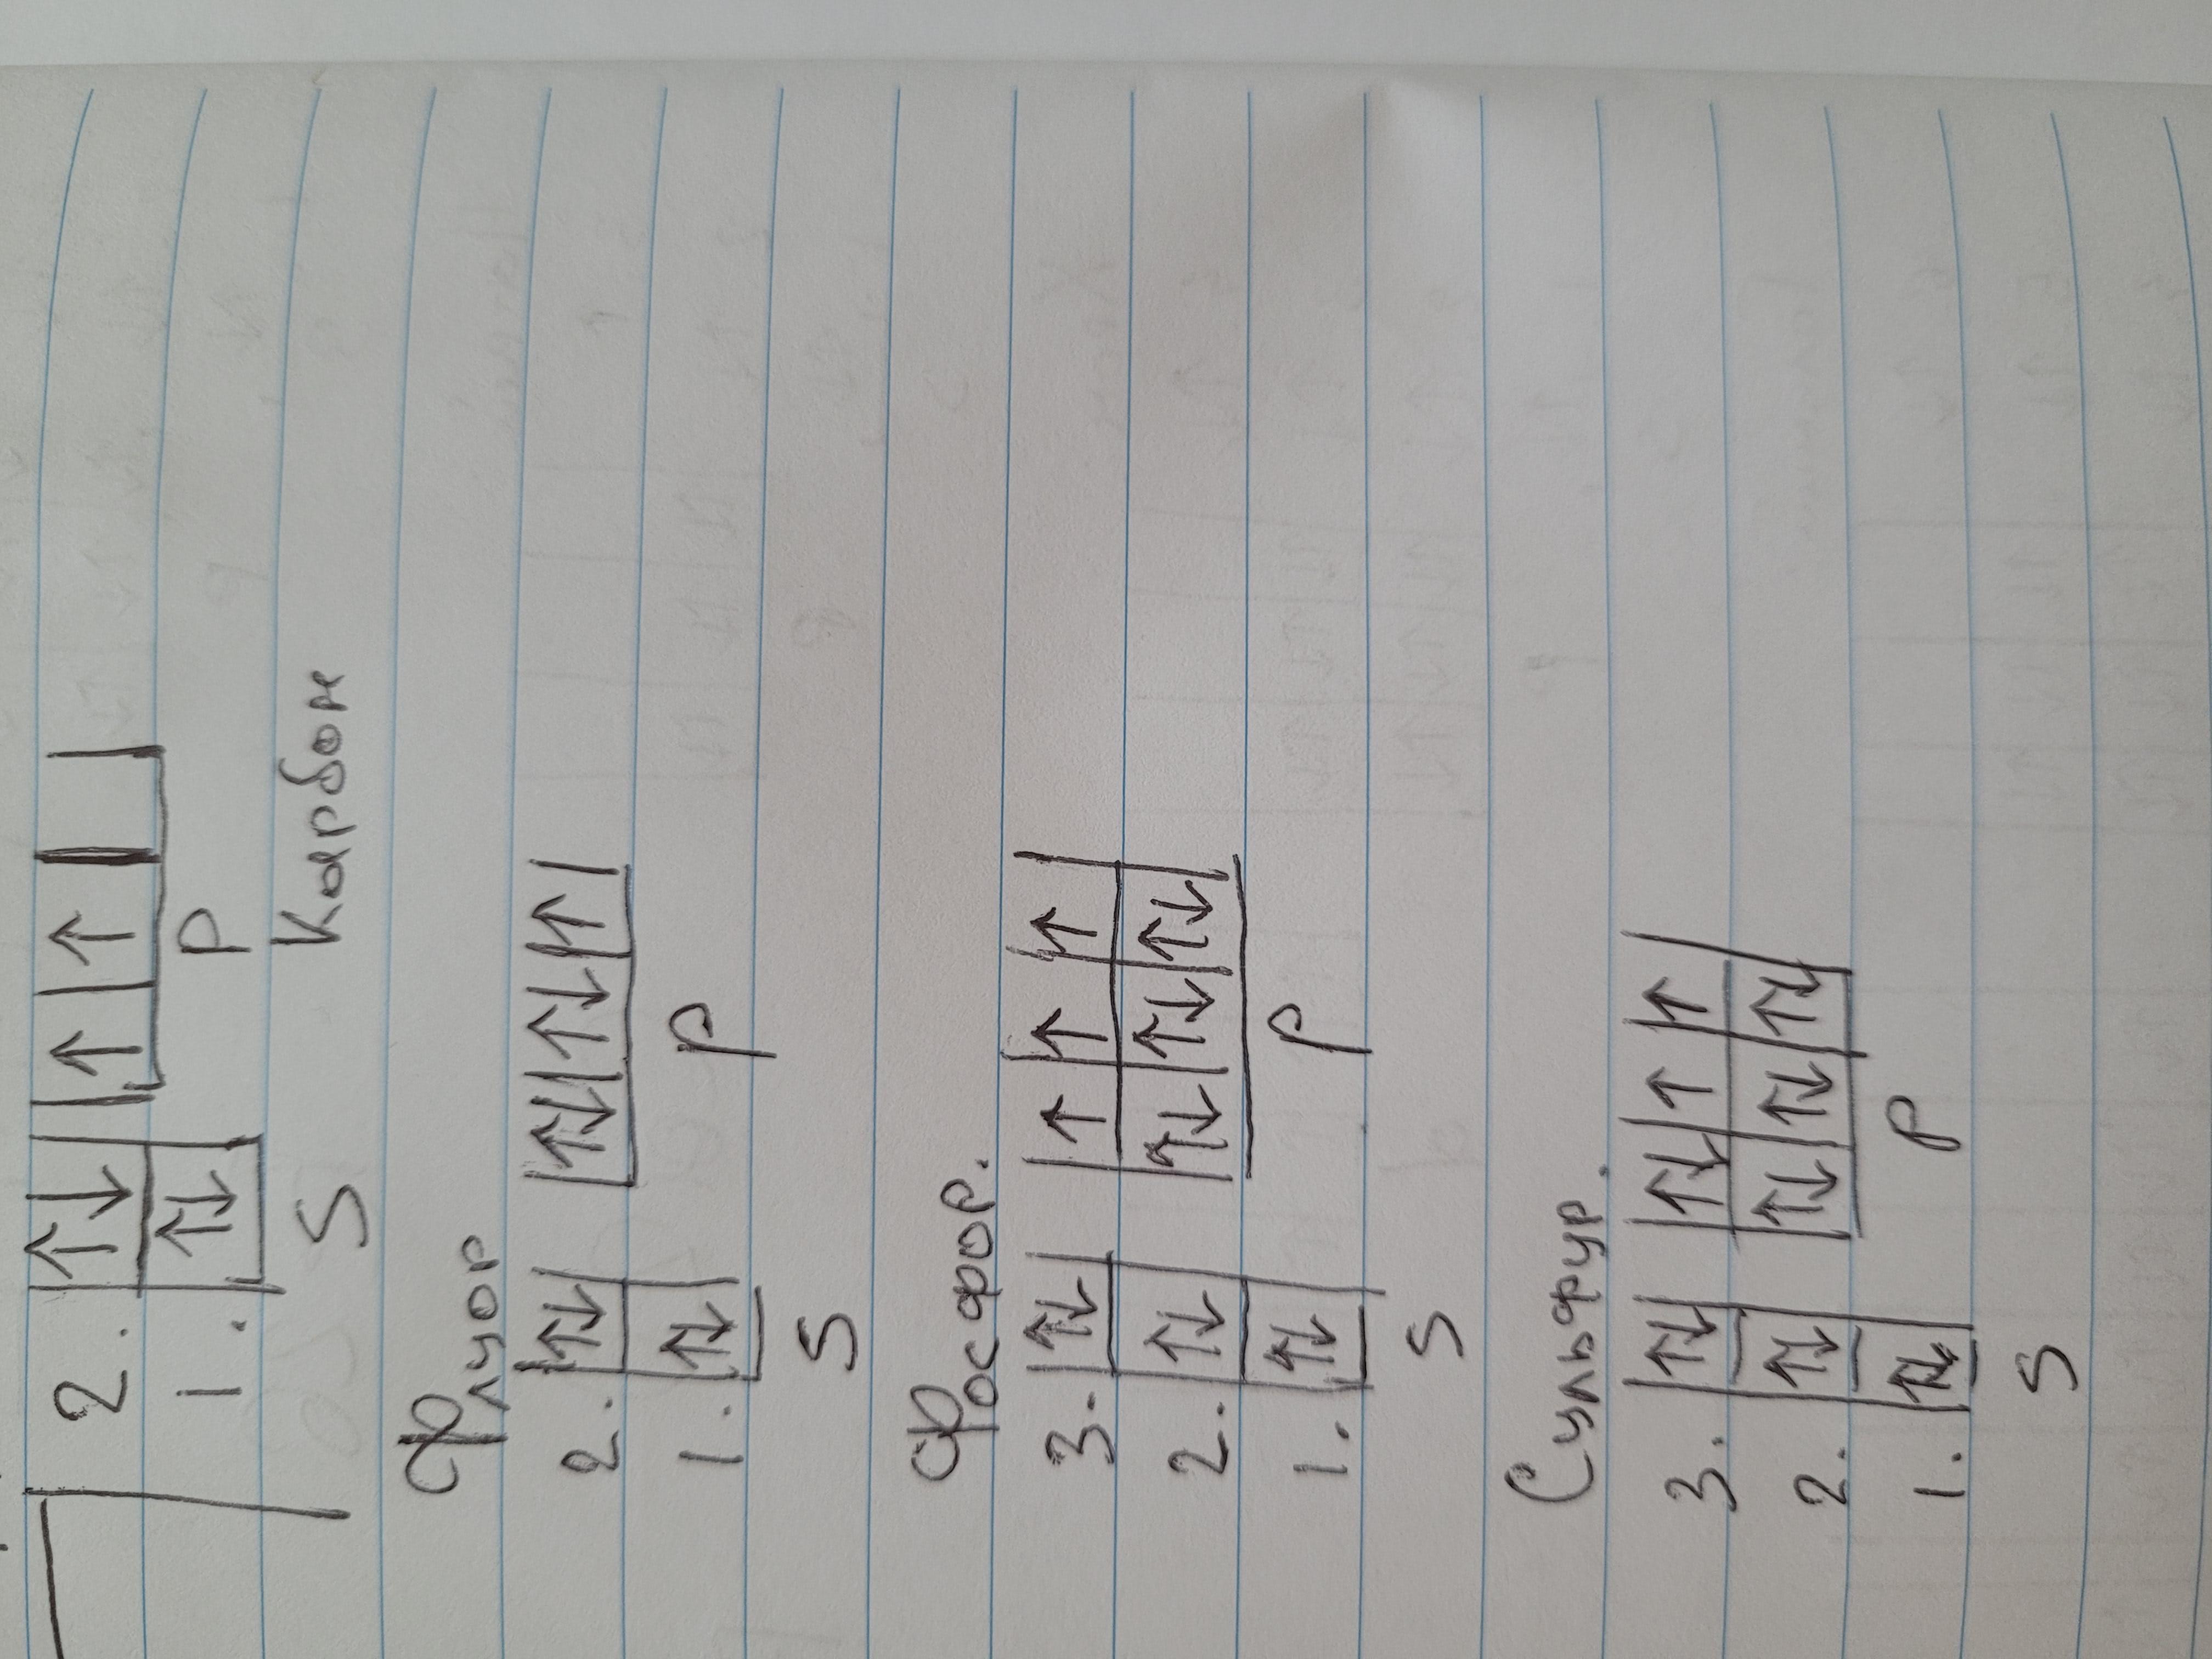 2. ↑↓ ↑ ↑
1. ↑↓
S P
Карбон
Флуор
2. ↑↓ ↑↓ ↑↓ ↑
1. ↑↓
S p
Фосфор.
3. ↑↓ ↑ ↑ ↑
2. ↑↓ ↑↓ ↑↓ ↑↓
1. ↑↓
S p
Сульфур.
3. ↑↓ ↑↓ ↑ ↑
2. ↑↓ ↑↓ ↑↓ ↑↓
1. ↑↓
S p